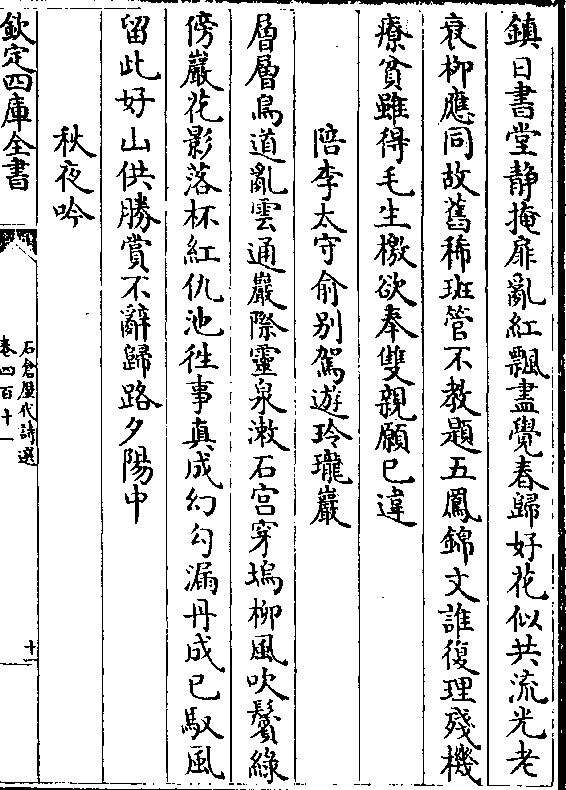 鎮日書堂静掩扉亂紅飄盡覺春歸好花似共流光老
衰柳應同故舊稀班管不教題五鳳錦文誰復理殘機
療貧雖得毛生檄欲奉雙親願已違
陪李太守俞别駕遊玲瓏巖
層層鳥道亂雲通巖際靈泉漱石宫穿塢柳風吹鬢綠
傍巖花影落杯紅仇池徃事真成幻勾漏丹成已馭風
留此好山供勝賞不辭歸路夕陽中
秋夜吟
欽定四庫全書
石倉歴代詩選
卷四百十一
十